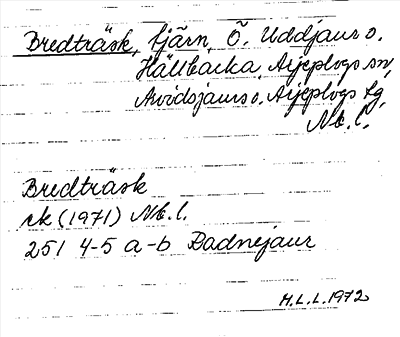 Bredträsk, tjärn, Ö. Uddjaur o.
Hällbacka, Arjeplogs sn,
Arvidsjaurs o. Arjeplogs tg,
Nb. l.
Bredträsk
ek (1971) Nb. l.
25I 4-5 a-b Radnejaur
H.L.L. 1972